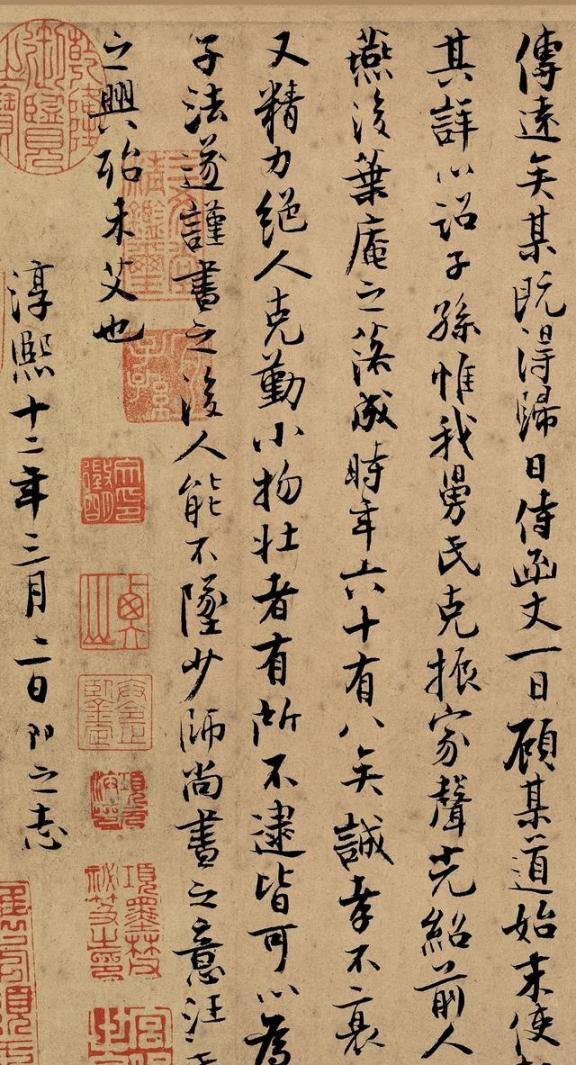 傳遠矣某既得歸日侍函丈一日顧某道始末使
其詳以詔子孫惟我舅氏克振家聲光紹前人
燕後葉庵之落成時年六十有八矣誠孝不衰
又精力絕人克勤小物壯者有所不逮皆可以為
子法遂謹書之後人能不墜少師尚書之意汪
之興殆未艾也
淳熙十二年三月二日即之志
乾隆御覽之寶
三希堂精鑑璽
宜子孫